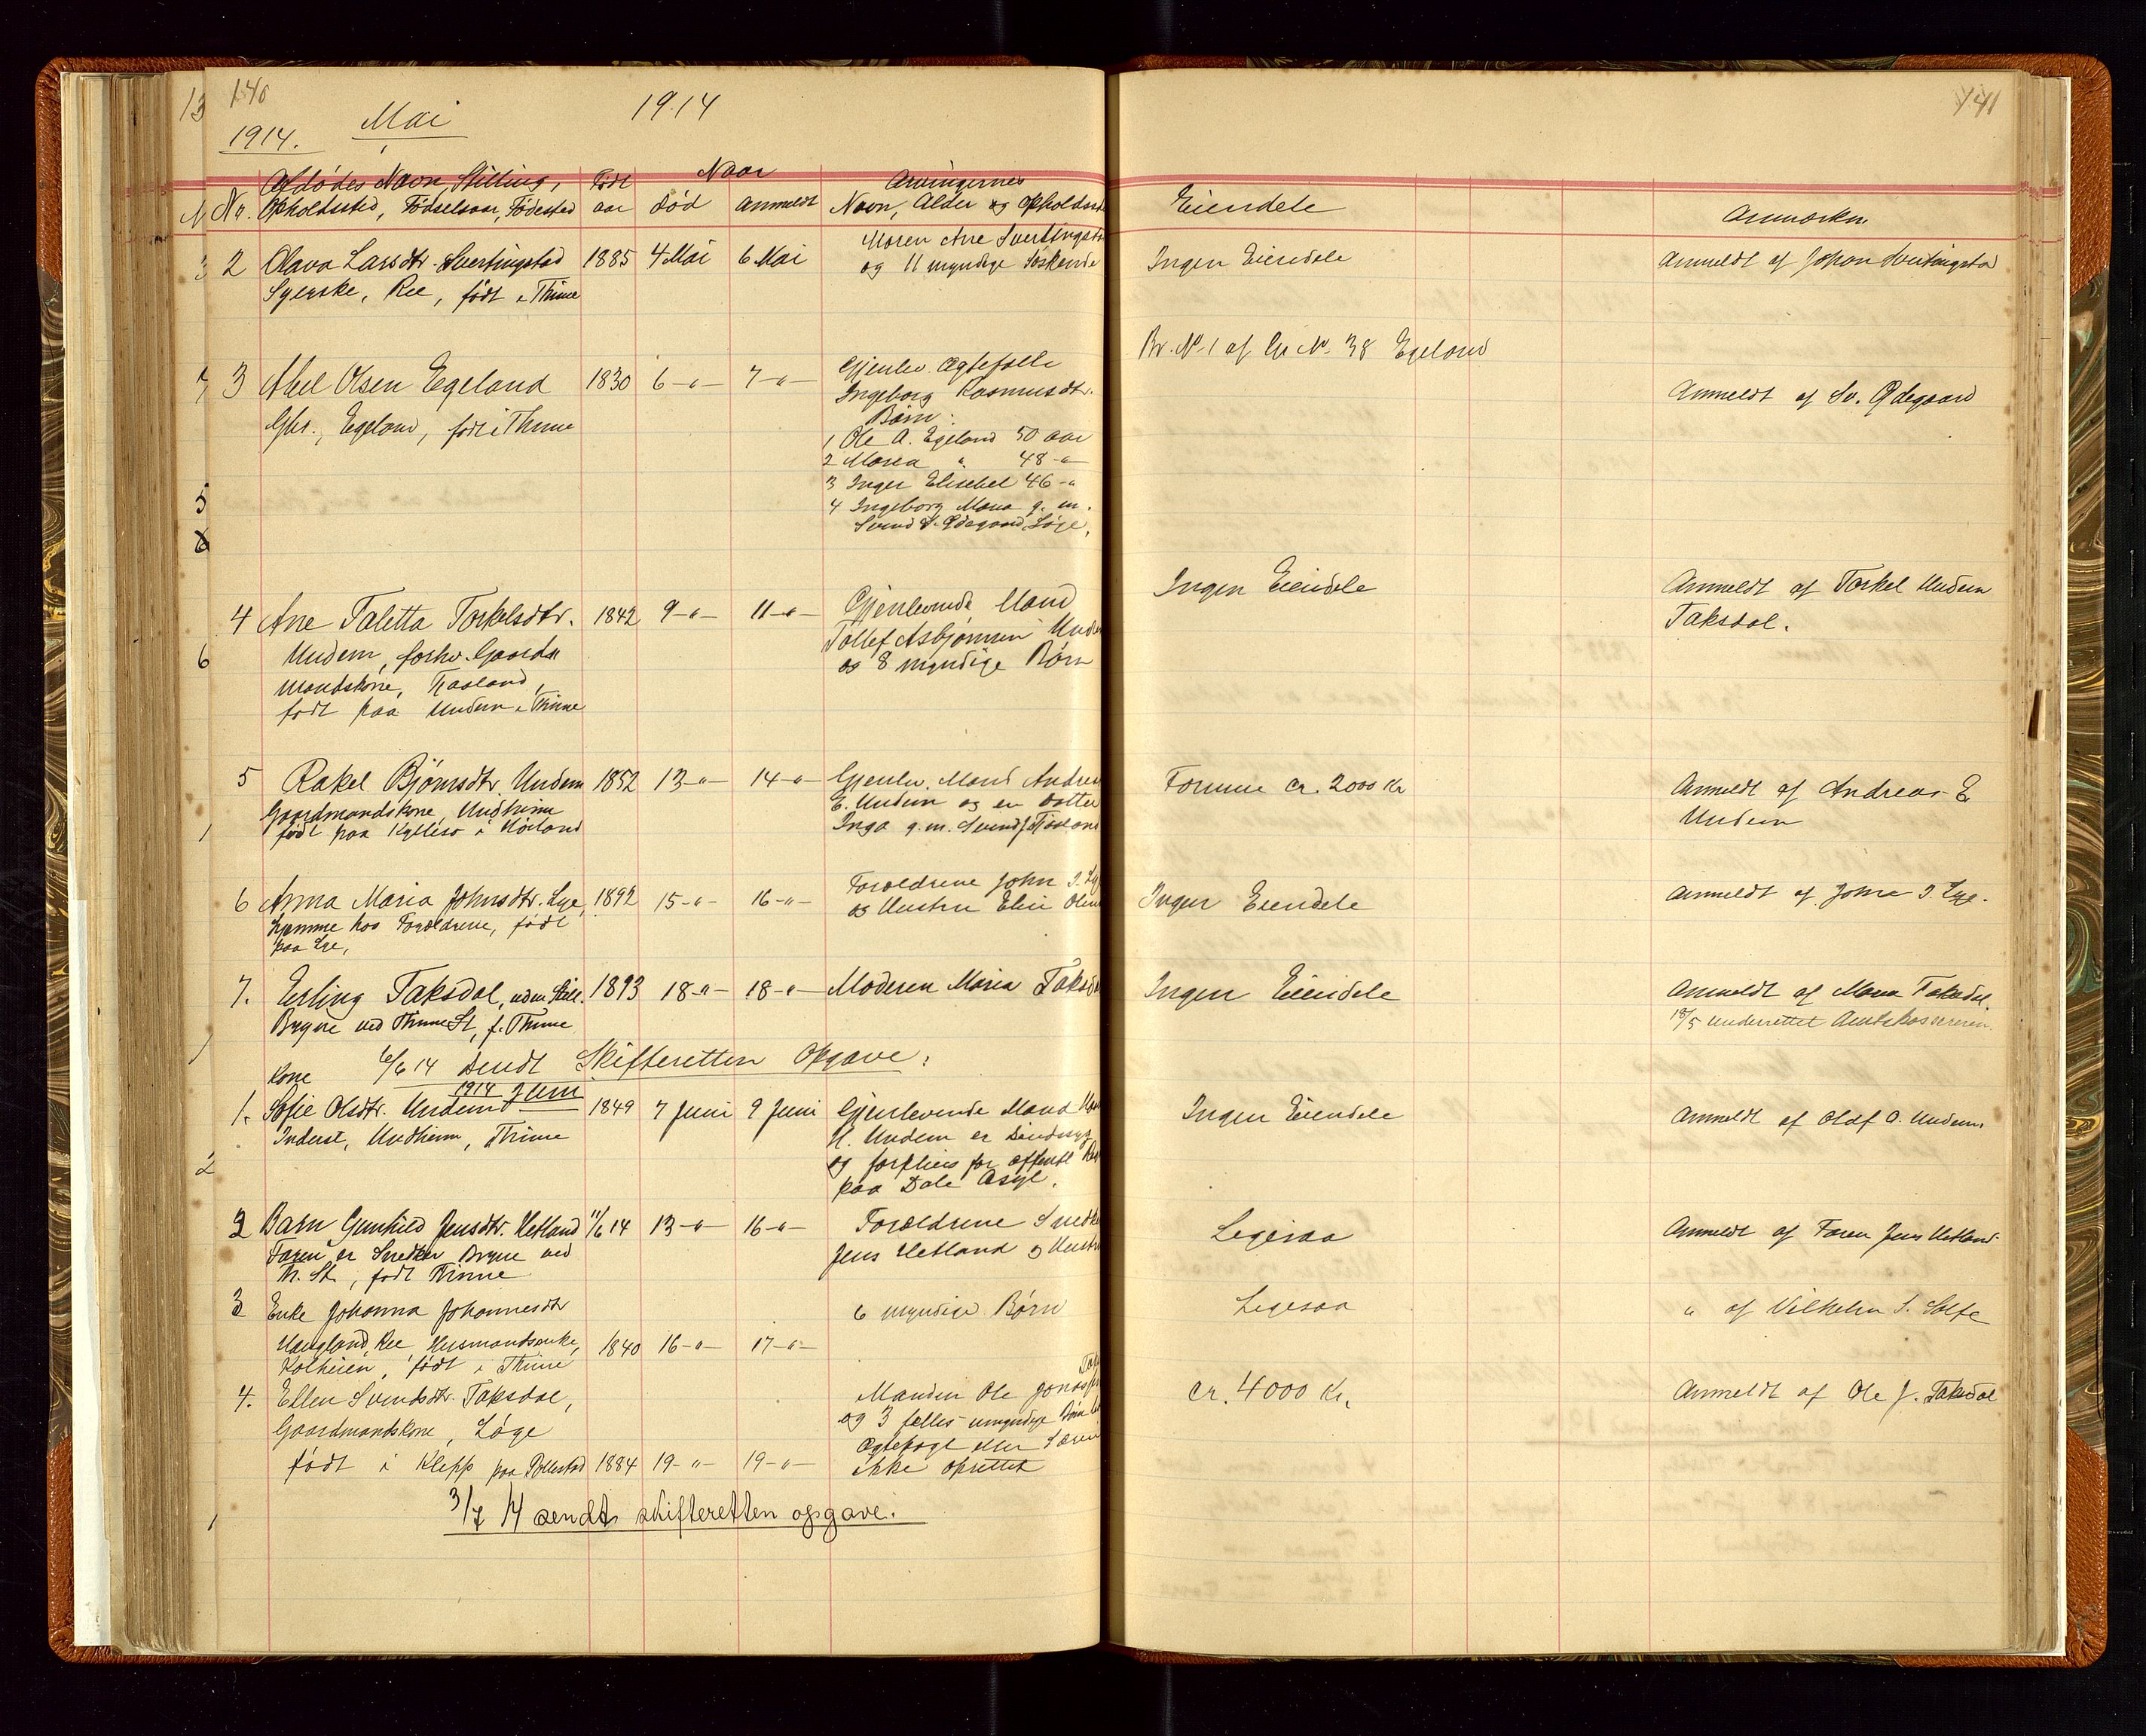 140
1914.
Mai
1914
141
Afdødes Navn, Stilling,
Opholdssted, Fødselsaar, Fødested
No.
Født
aar
Naar
død
anmeldt
Arvingernes
Navn, Alder og Opholdsst
Eiendele
Anmærkn.
2 Olava Larsdtr. Svertingstad 1885 4 Mai 6 Mai
Syerske, Ree, født i Thime
Moren Ane Svertingsta
og 11 myndige Søskende
Ingen Eiendele
Anmeldt af Johan Svertingstad
3 Abel Olsen Egeland 1830 6-"- 7-"-
Gbr., Egeland, født i Thime
Gjenlev. Ægtefælle
Ingeborg Rasmusdtr.
Børn:
1 Ole A. Egeland 50 aar
2 Maria " 48-"-
3 Inger Elisebet 46-"
4 Ingeborg Maria g. m.
Svend S. Ødegaard, Løge,
Br. No. 1 af Gr No. 38 Egeland
Anmeldt af Sv. Ødegaard
4 Ane Taletta Torkelsdtr. 1842 9-"- 11-"-
Undem, forhv. Gaard
mandskone, Fraaland,
født paa Undem i Thime
Gjenlevende Mand
Tollef Asbjørnsen Unde
og 8 myndige Børn
Ingen Eiendele
Anmeldt af Torkel Undem
Taksdal.
5 Rakel Bjørnsdtr. Undem 1852 13-"- 14-"-
Gaardmandskone, Undheim
født paa Kyllesø i Høiland
Gjenlev. Mand Andrea
E. Undem og en Datter
Inga g.m. Svend J.
Formue ca. 2000 Kr
Anmeldt af Andreas E
Undem
6 Anna Maria Johnsdtr. Lye, 1892 15-"- 16-"-
hjemme hos Forældrene, født
paa Lye,
Forældrene John I. Ly
og Hustru Elen Olin
Ingen Eiendele
Anmeldt af John I. Lye.
7. Erling Taksdal, uden Still. 1893 18-"- 18-"-
Bryne ved Thime St, f. Thime
Moderen Maria Taksd
Ingen Eiendele
Anmeldt af Maria Taksdal
18/5 Underrettet Amtskassereren.
6/6 14 sendt Skifteretten Opgave:
1914 Juni
Kone
1. Sofie Olsdtr. Undem 1849 7 Juni 9 Juni
Inderst, Undheim, Thime
Gjenlevende Mand
H. Undem er Sindssyg
og forpleies for offentl
paa Dale Asyl.
Ingen Eiendele
Anmeldt af Olaf A. Undem.
2 Barn Gunhild Jensdtr. Hetland 11/6 14 13-"- 16-"-
Faren er Snedker Bryne ved
Th. St, født Thime
Forældrene Snedk
Jens Hetland og Hustr
Legesaa
Anmeldt af Faren Jens Hetland
3 Enke Johanna Johannesdtr
Haugland, Ree, Husmandsenke, 1840 16-"- 17-"-
Kolheien, født i Thime
6 myndige Børn
Legesaa
" af Vilhelm S.
4. Ellen Svendsdtr. Taksdal,
Gaardmandskone, Løge
født i Klepp paa Pollestad 1884 19-"- 19-"-
Manden Ole Jonas
og 3 fælles umyndige Børn
Ægtepagt eller Særeie
ikke oprettet
ca. 4000 Kr.
Anmeldt af Ole J. Taksdal
3/7 14 sendt skifteretten opgave.